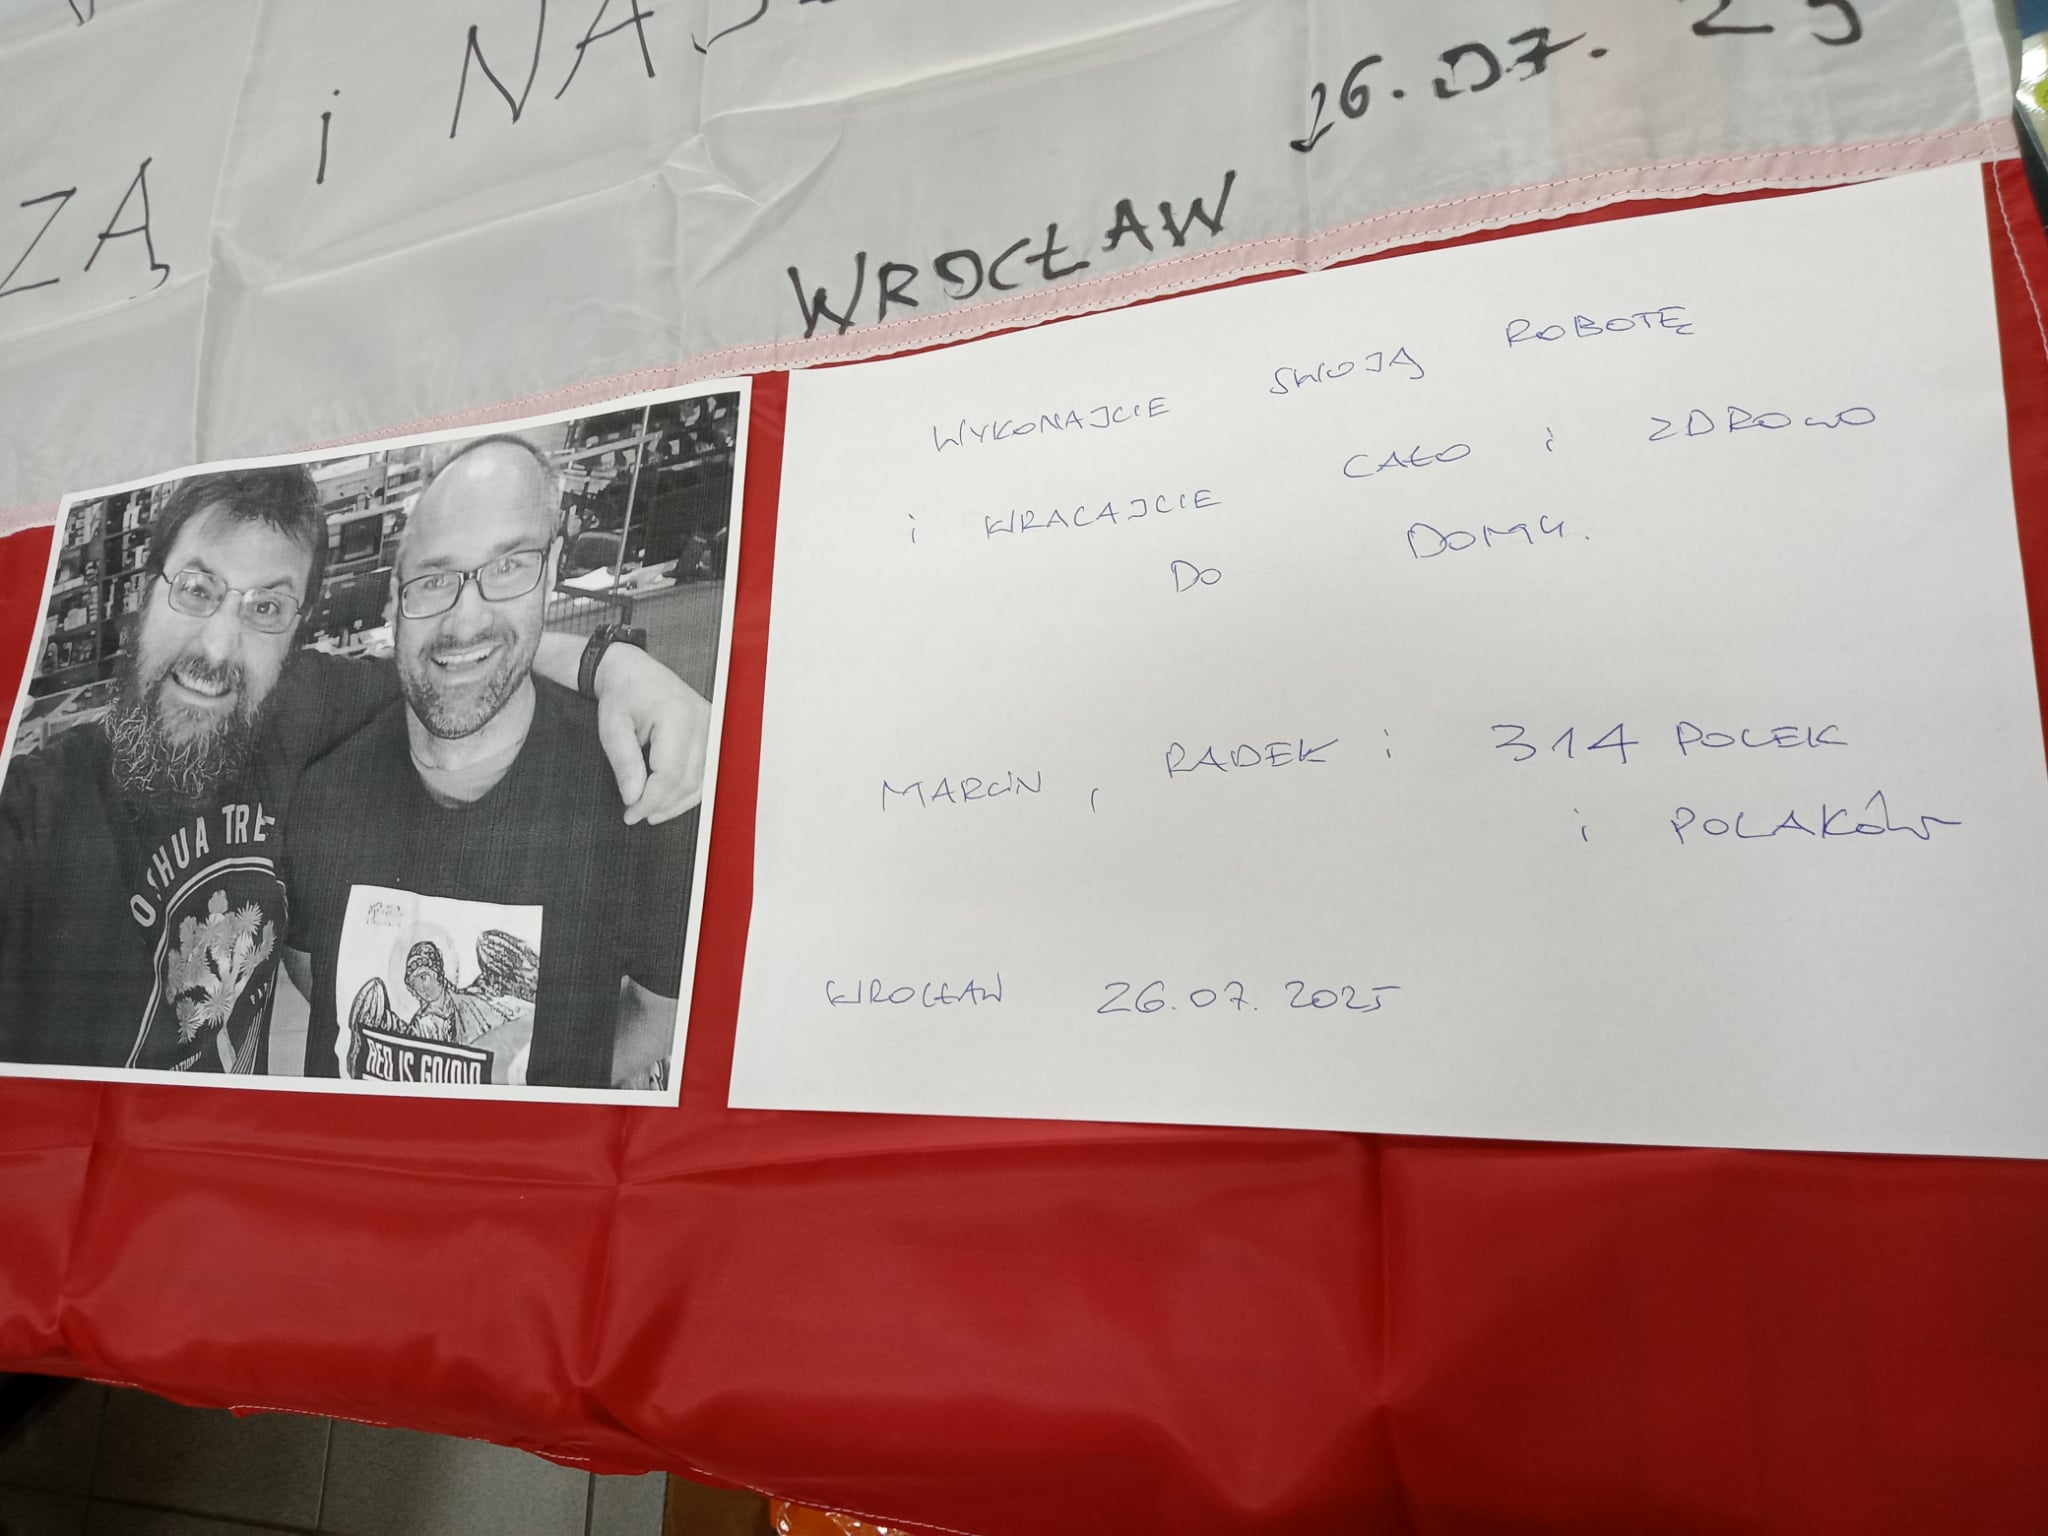 i
ZĄ
WROCŁAW 26.07.25
WYKONAJCIE SWOJĄ ROBOTĘ
i WRACAJCIE CAŁO i ZDROWO
DO DOMU.
MARCIN, RADEK i 314 POLEK
i POLAKÓW
WROCŁAW 26.07.2025
OSHUA TRE
RED IS GO(O)D